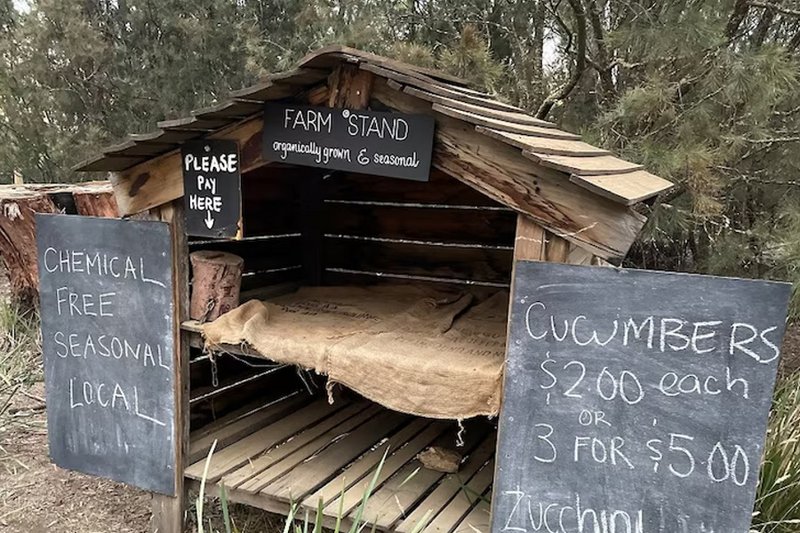 FARM STAND
organically grown & seasonal
PLEASE
PAY
HERE
CHEMICAL
FREE
SEASONAL
LOCAL
CUCUMBERS
$2.00 each
OR
3 FOR $5.00
Zucchini